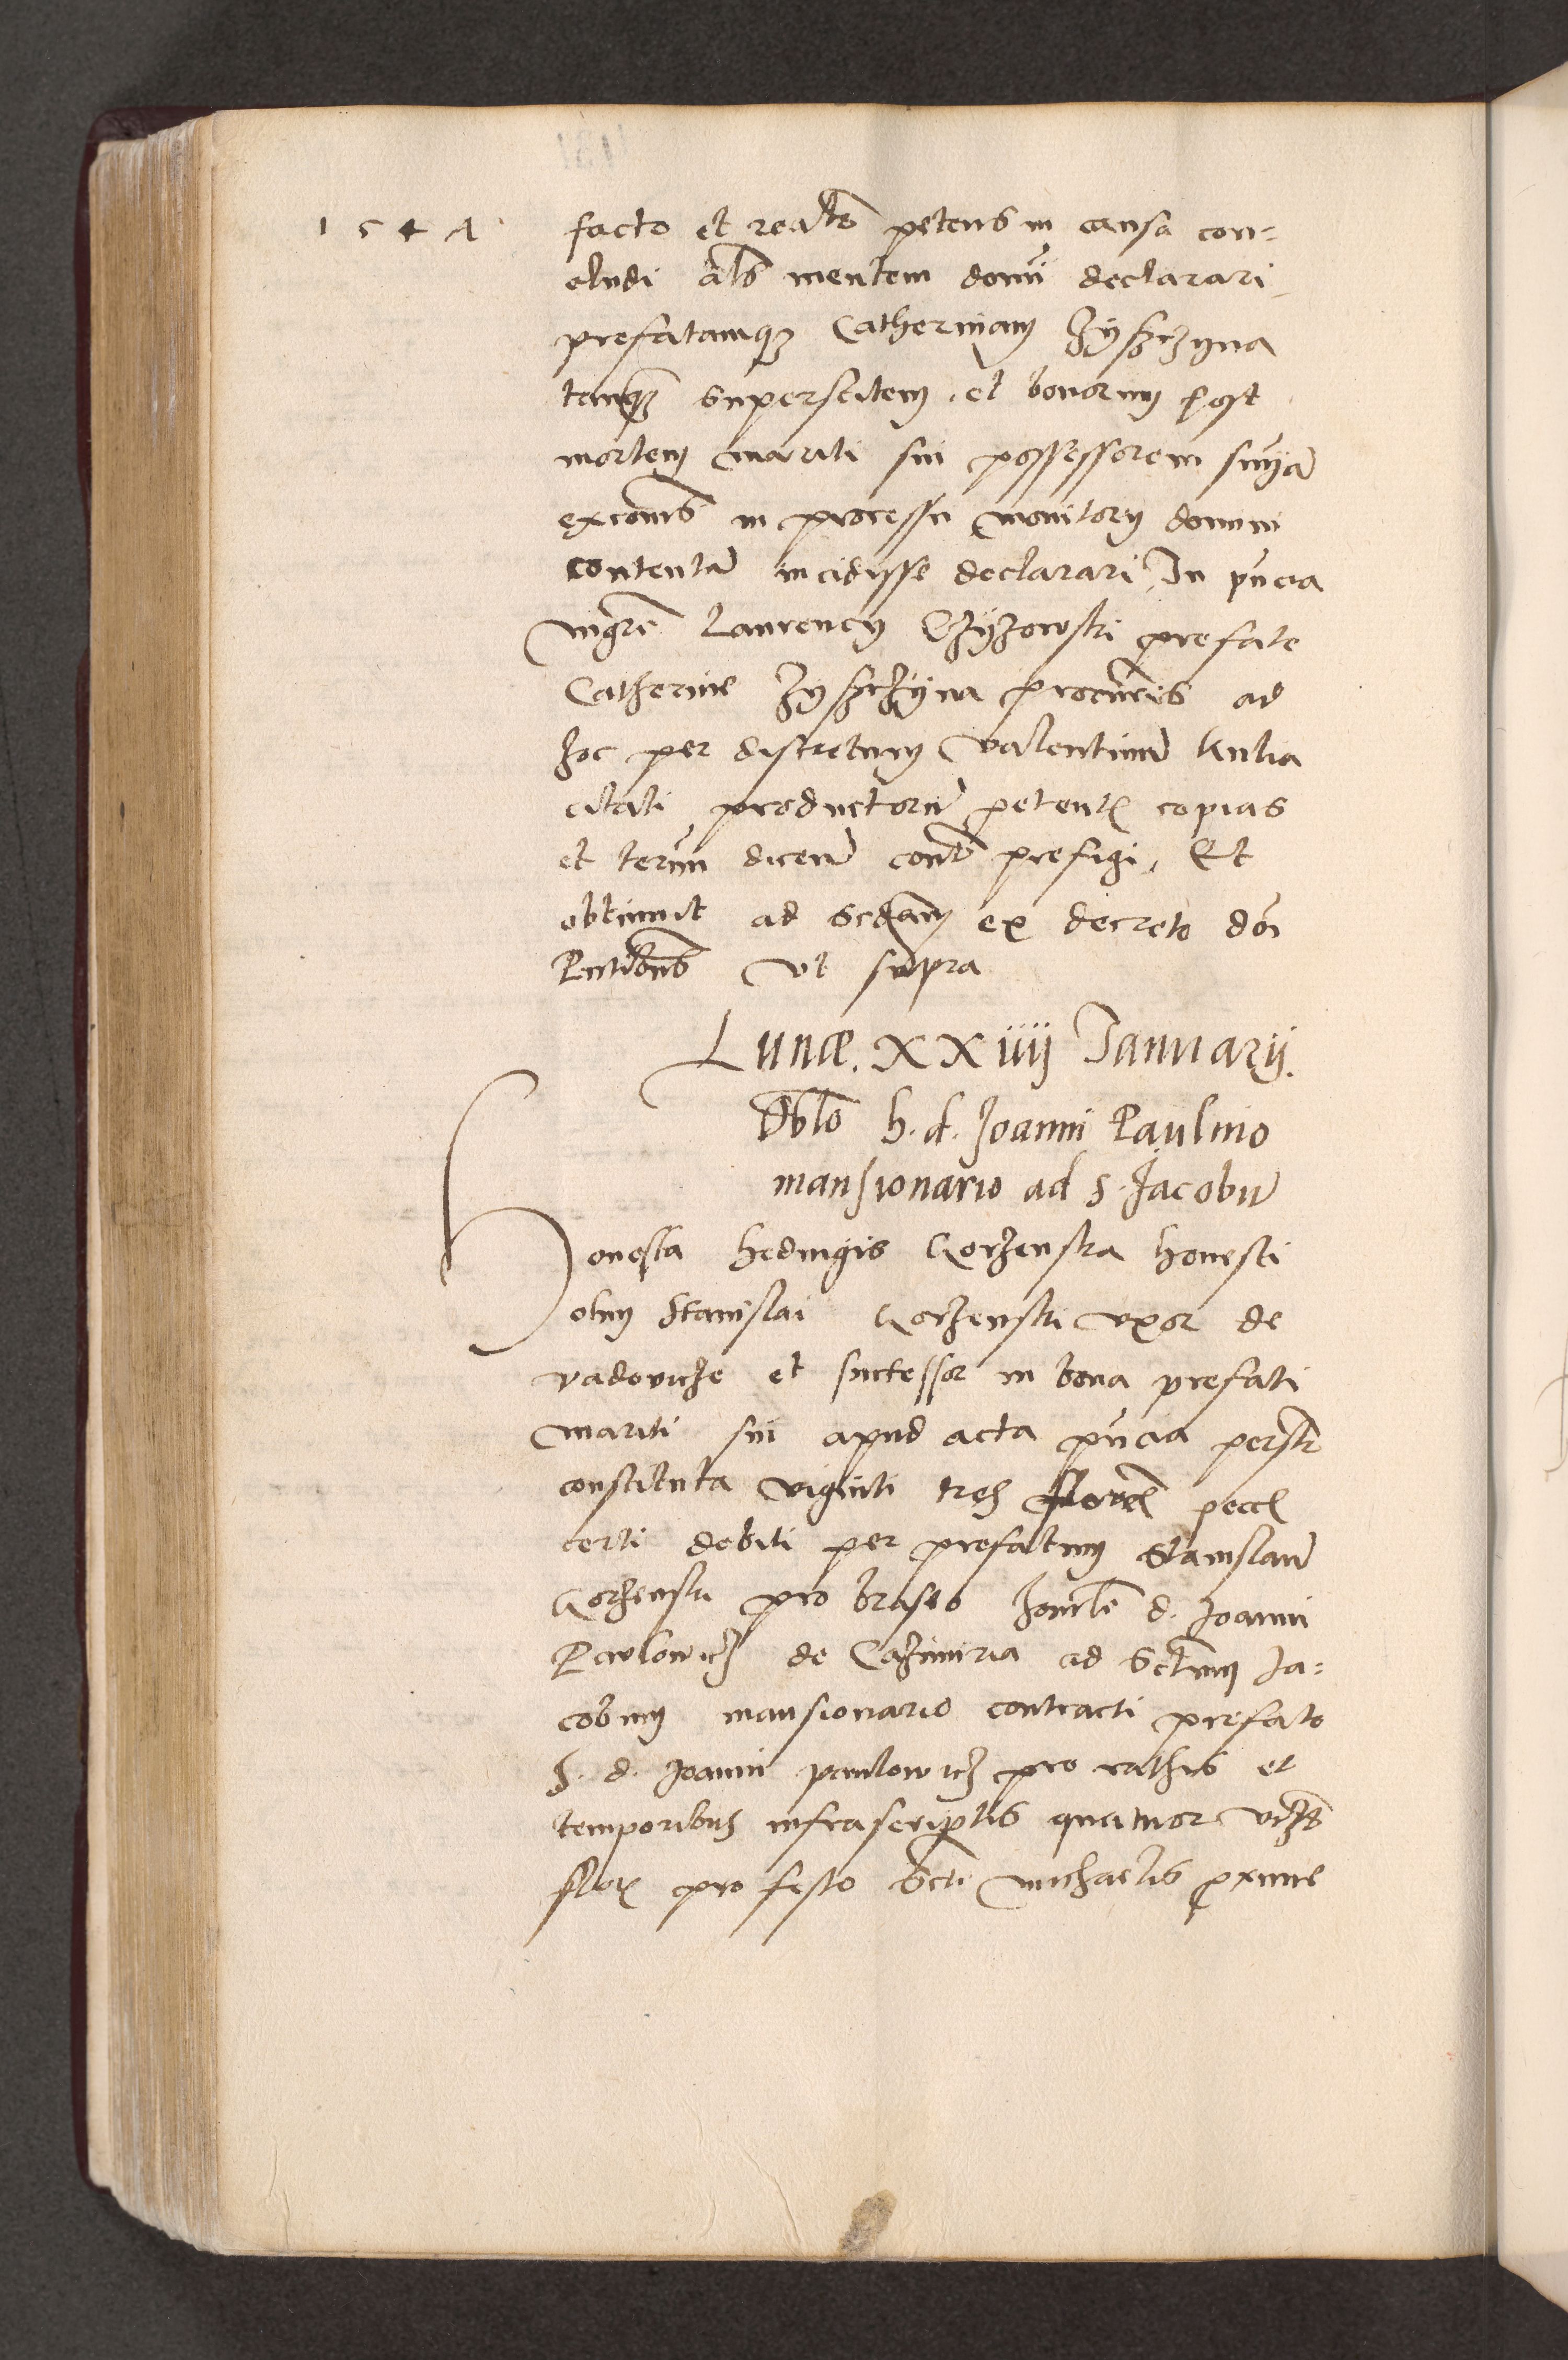 1541
facto et realto petens in causa con=
cludi als mentem domi declarari
prefatamq Catherinam Zyszczyna
tanq superstitem et bonorum post
mortem mariti sui possessorem sniam
excomis in processu monitorii domini
contentam incidisse declarari, In pncia
mgri Laurency Chyzowski prefate
Catherine Zyszczyna procuris ad
hoc per discretum Valentinum Kulia
citati productorum petent copias
et termm dicendum contra prefigi, Et
obtinuit ad scdam ex decreto dni
Pntibus ut supra
Lunæ. XXiiij Januarij.
Oblo h. d. Joanni Paulino
mansionario ad S. Jacobum
Honesta Hedwigis Korzenska honesti
olim Stanislai Korzenski uxor de
vadoviche et successor in bona prefati
mariti sui apud acta pncia persr
constituta viginti tres floren pecc
certi debiti per prefatum Stanislaum
Korzenski pro braseo honorabli d. Joanni
Pavlowicz de Cazimiria ad Sctum Ja=
cobum mansionario contracti prefato
h. d. Joanni paulowicz pro rathis et
temporibus infrascriptis quatuor vidzt
flor pro festo Scti Michaelis pxime